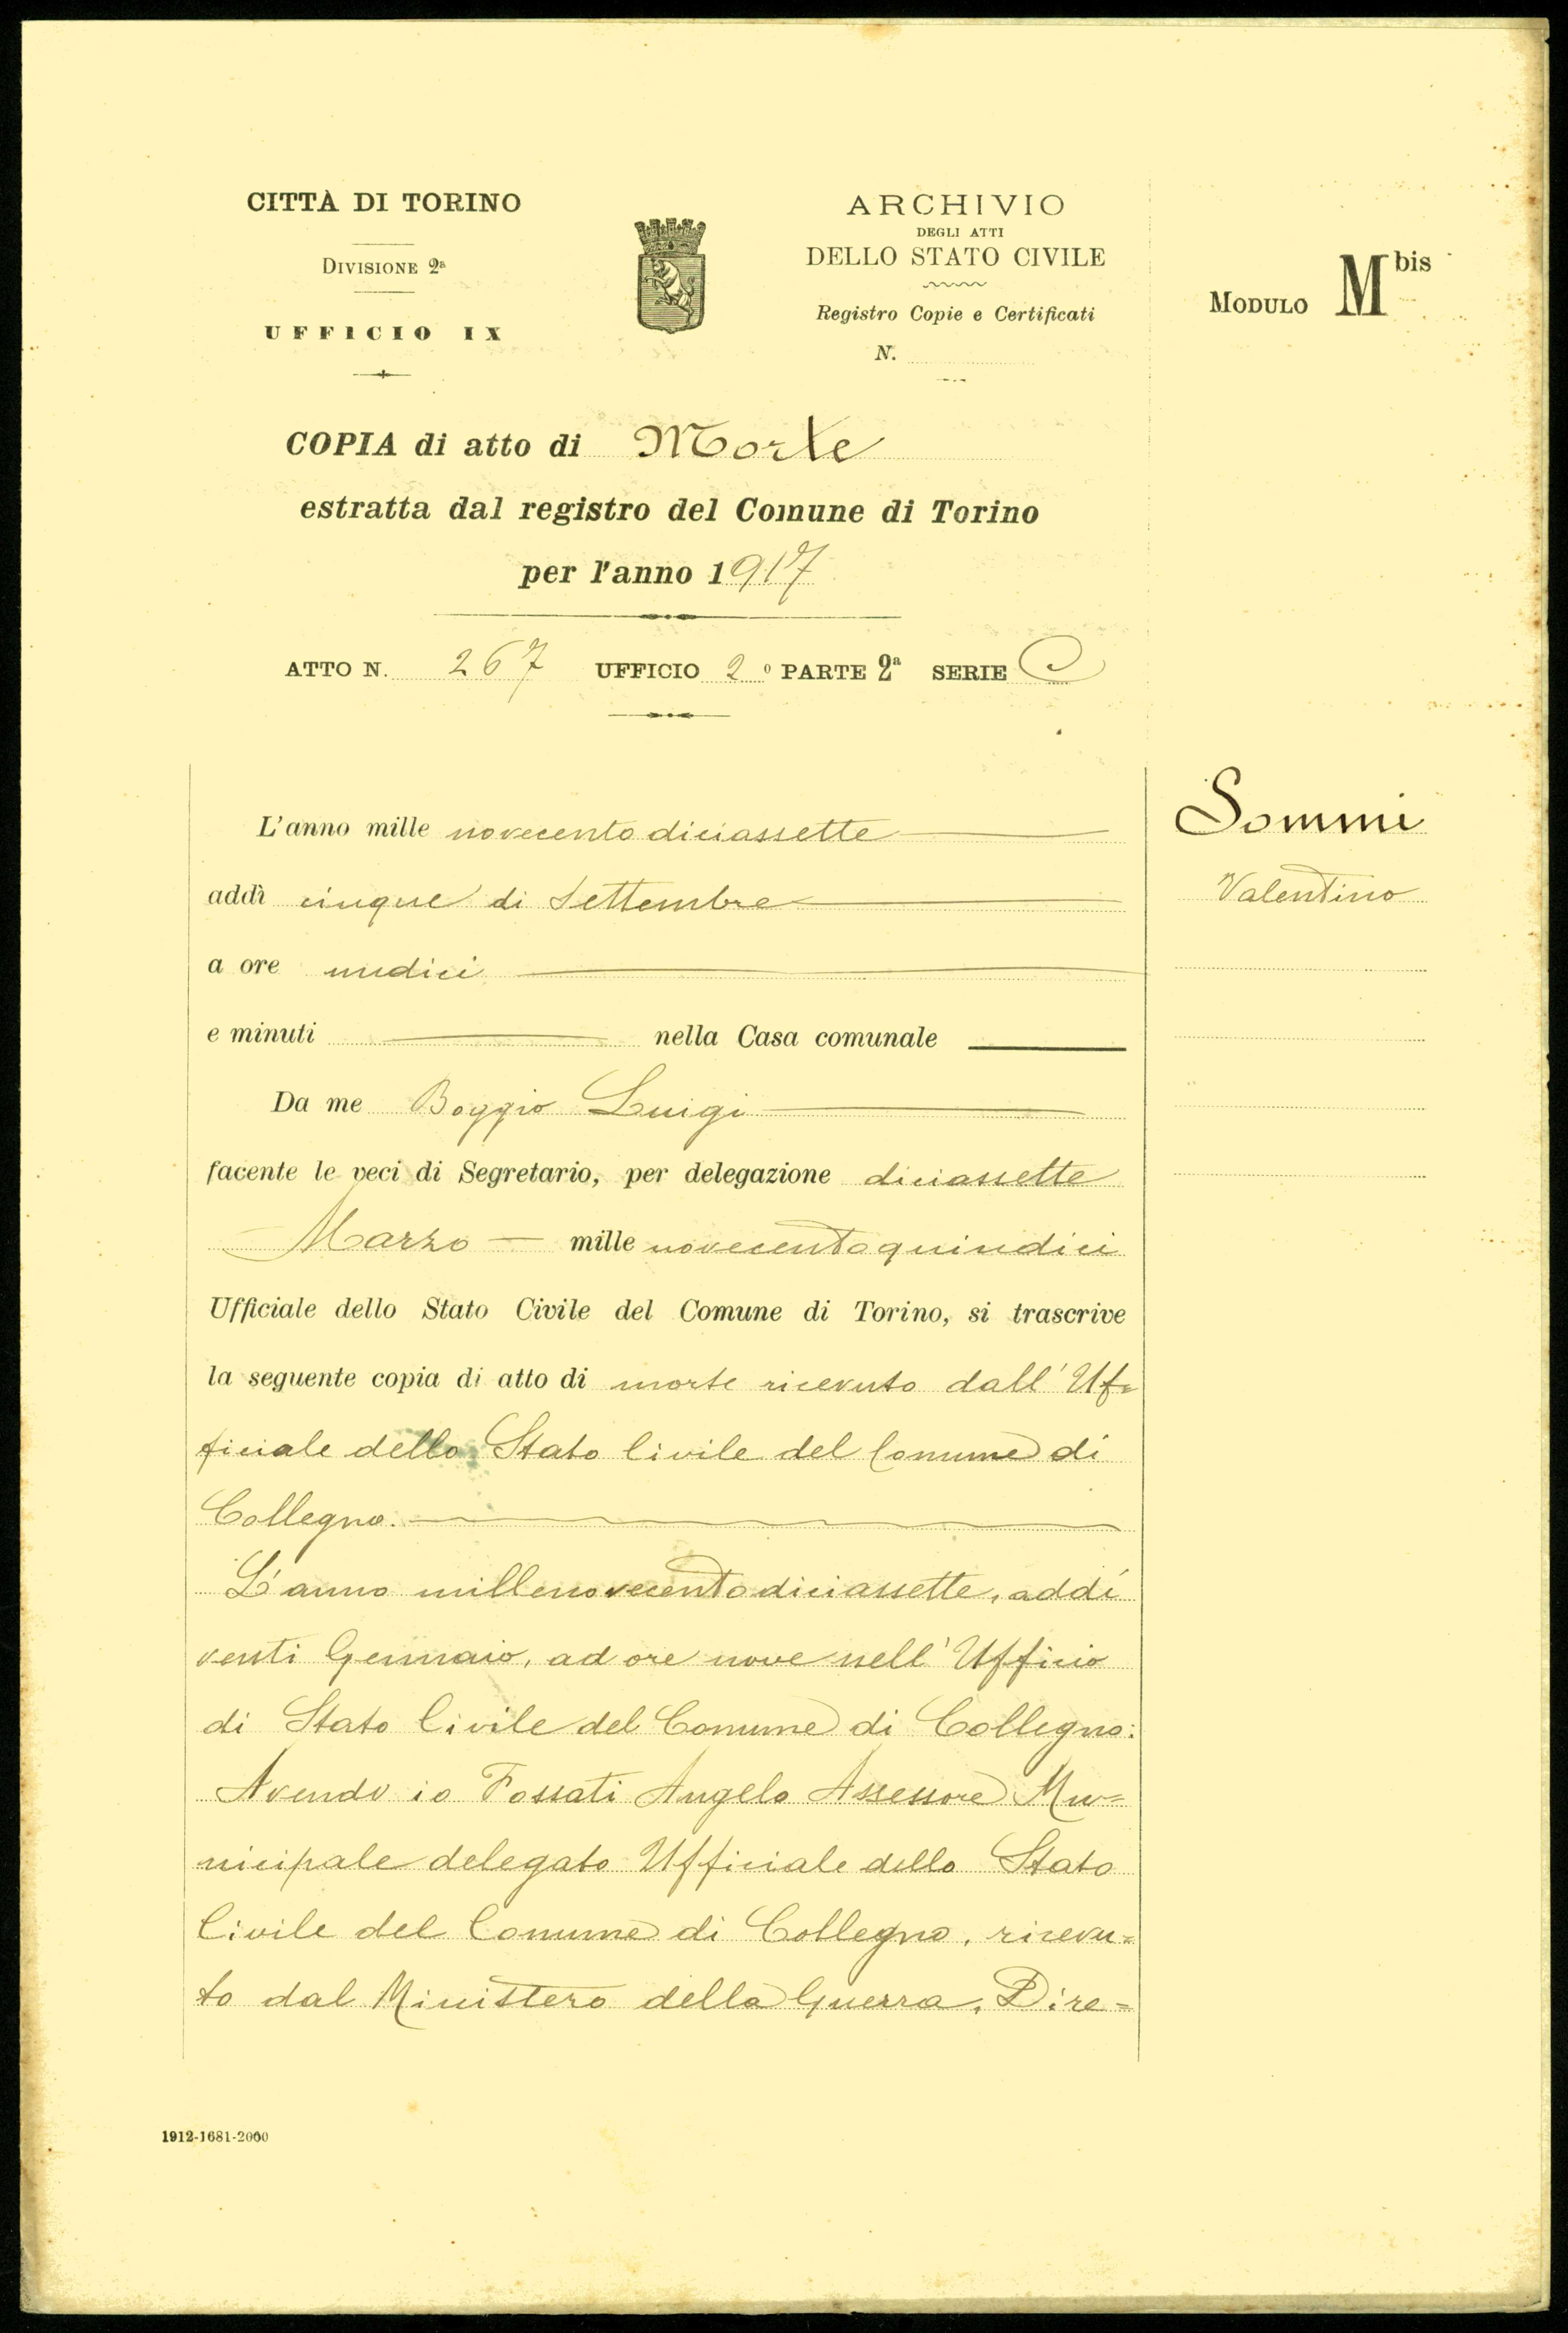 CITTÀ DI TORINO
DIVISIONE 2ª
UFFICIO IX
ARCHIVIO
DEGLI ATTI
DELLO STATO CIVILE
Registro Copie e Certificati
N.
MODULO M bis
COPIA di atto di Morte
estratta dal registro del Comune di Torino
per l'anno 1917
ATTO N. 267 UFFICIO 2º PARTE 2ª SERIE C
L'anno mille novecento diciassette
addì cinque di Settembre
a ore undici
e minuti nella Casa comunale
Da me Boggio Luigi
facente le veci di Segretario, per delegazione diciassette
Marzo mille novecento quindici
Ufficiale dello Stato Civile del Comune di Torino, si trascrive
la seguente copia di atto di morte ricevuto dall'Uf=
ficiale dello Stato Civile del Comune di
Collegno.
L'anno millenovecentodiciassette, addì
venti Gennaio, ad ore nove nell'Ufficio
di Stato Civile del Comune di Collegno:
Avendo io Fossati Angelo Assessore Mu=
nicipale delegato Ufficiale dello Stato
Civile del Comune di Collegno, ricevu=
to dal Ministero della Guerra, Dire=
Sommi
Valentino
1912-1681-2000